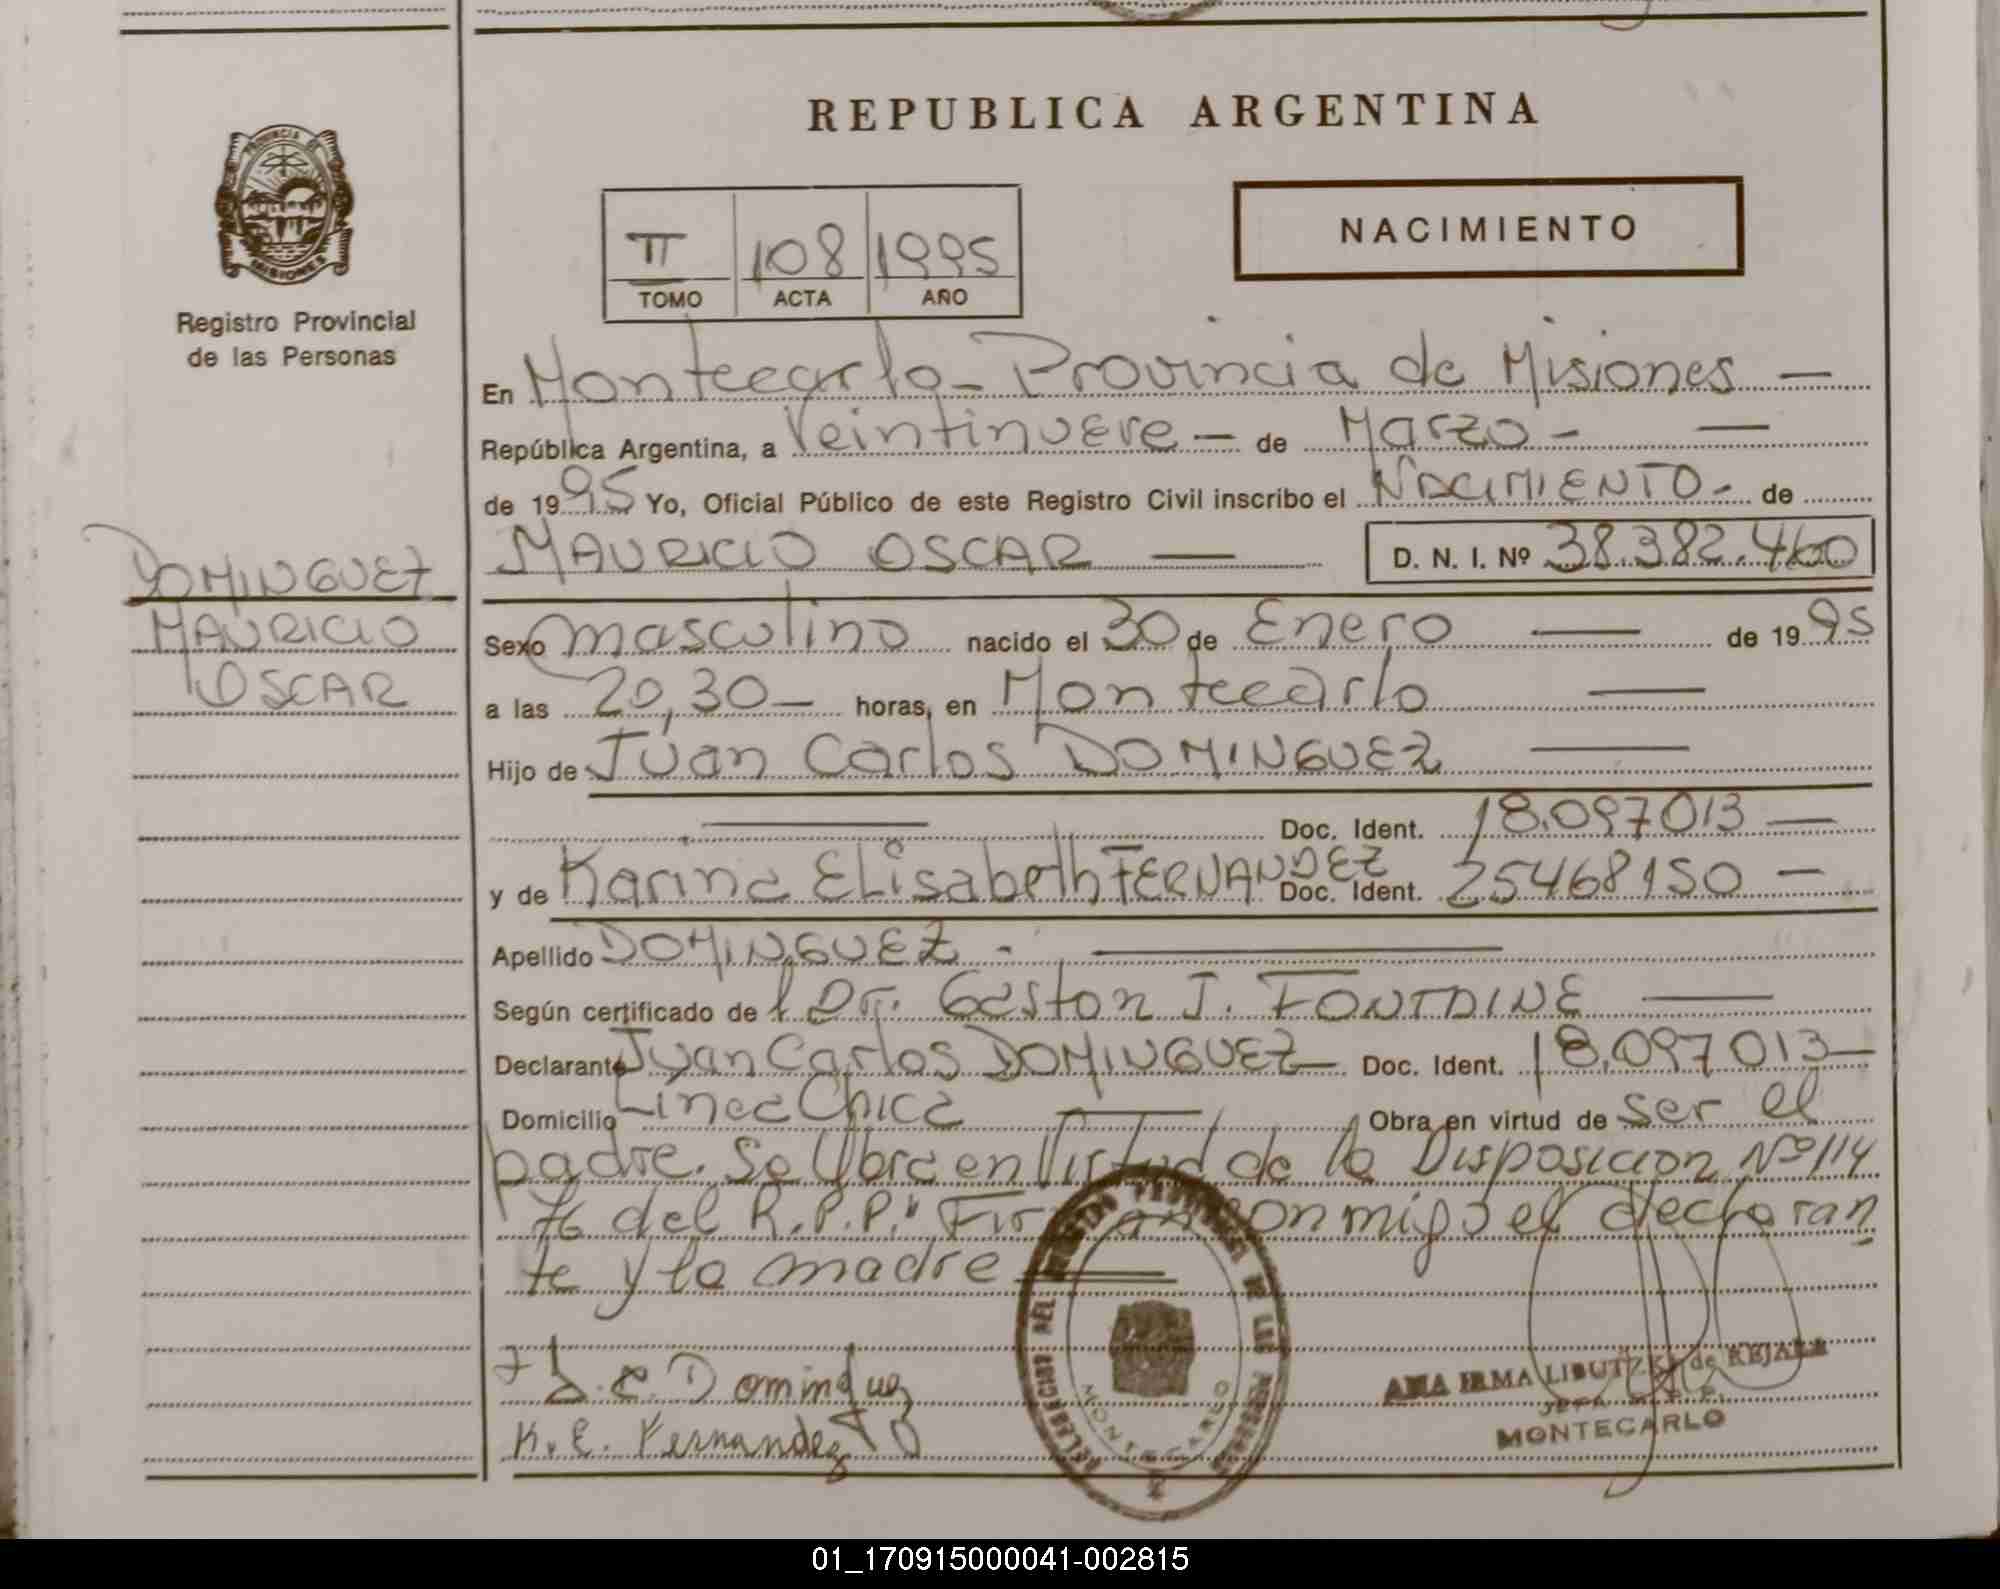 REPUBLICA ARGENTINA
PROVINCIA DE
MISIONES
Registro Provincial
de las Personas
II 108 1995
TOMO ACTA AÑO
NACIMIENTO
En Montecarlo - Provincia de Misiones —
República Argentina, a Veintinueve — de Marzo - —
de 1995 Yo, Oficial Público de este Registro Civil inscribo el NACIMIENTO - de
MAURICIO OSCAR — D. N. I. Nº 38.382.460
DOMINGUEZ
MAURICIO
OSCAR
Sexo masculino nacido el 30 de Enero — de 1995
a las 20,30 — horas, en Montecarlo —
Hijo de Juan Carlos DOMINGUEZ —
— Doc. Ident. 18.097013 —
y de Karina Elisabeth FERNANDEZ Doc. Ident. 25468150 —
Apellido DOMINGUEZ - —
Según certificado de l Dr. Gaston J. FONTAINE —
Declarante Juan Carlos DOMINGUEZ — Doc. Ident. 18.097013 —
Domicilio Línea Chica — Obra en virtud de ser el
padre. Se Obra en Virtud de la Disposicion Nº 114
del R.P.P." Firman conmigo el declaran
te y la madre —
J.C. Dominguez
K.E. Fernandez
MONTECARLO
ANA IRMA LIBUTZKI de KEJALA
JEFA R.P.P.
MONTECARLO
01_170915000041-002815